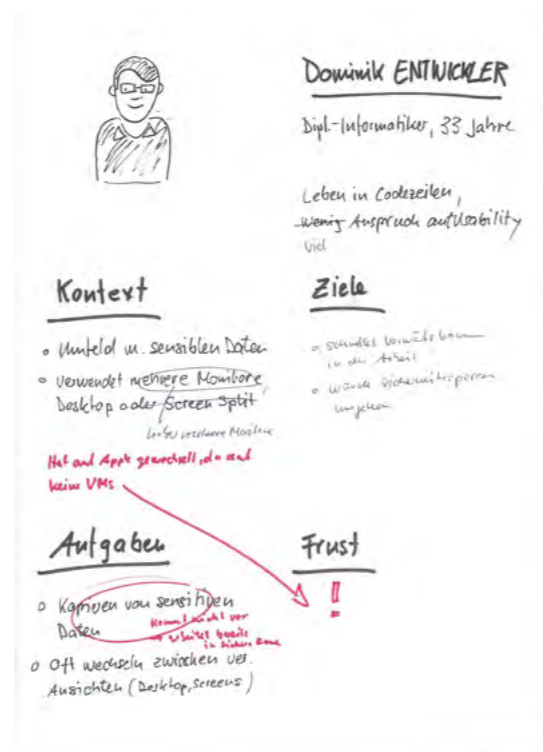 Dominik ENTWICKLER
Dipl.-Informatiker, 33 Jahre
Leben in Codezeilen,
wenig Anspruch auf Usability
viel
Kontext
Umfeld m. sensiblen Daten
verwendet mehrere Monitore
Desktop oder Screen Split
mehrere Monitore
Hat auf Apple gewechselt, da
keine VMs
Ziele
schnelles
in der Arbeit
würde Sicherheitssperren
umgehen
Aufgaben
Kopieren von sensitiven
Daten
kommt nicht vor
arbeitet bereits
in sicherer Zone
Oft wechseln zwischen ver.
Ansichten (Desktop, Screens)
Frust
!